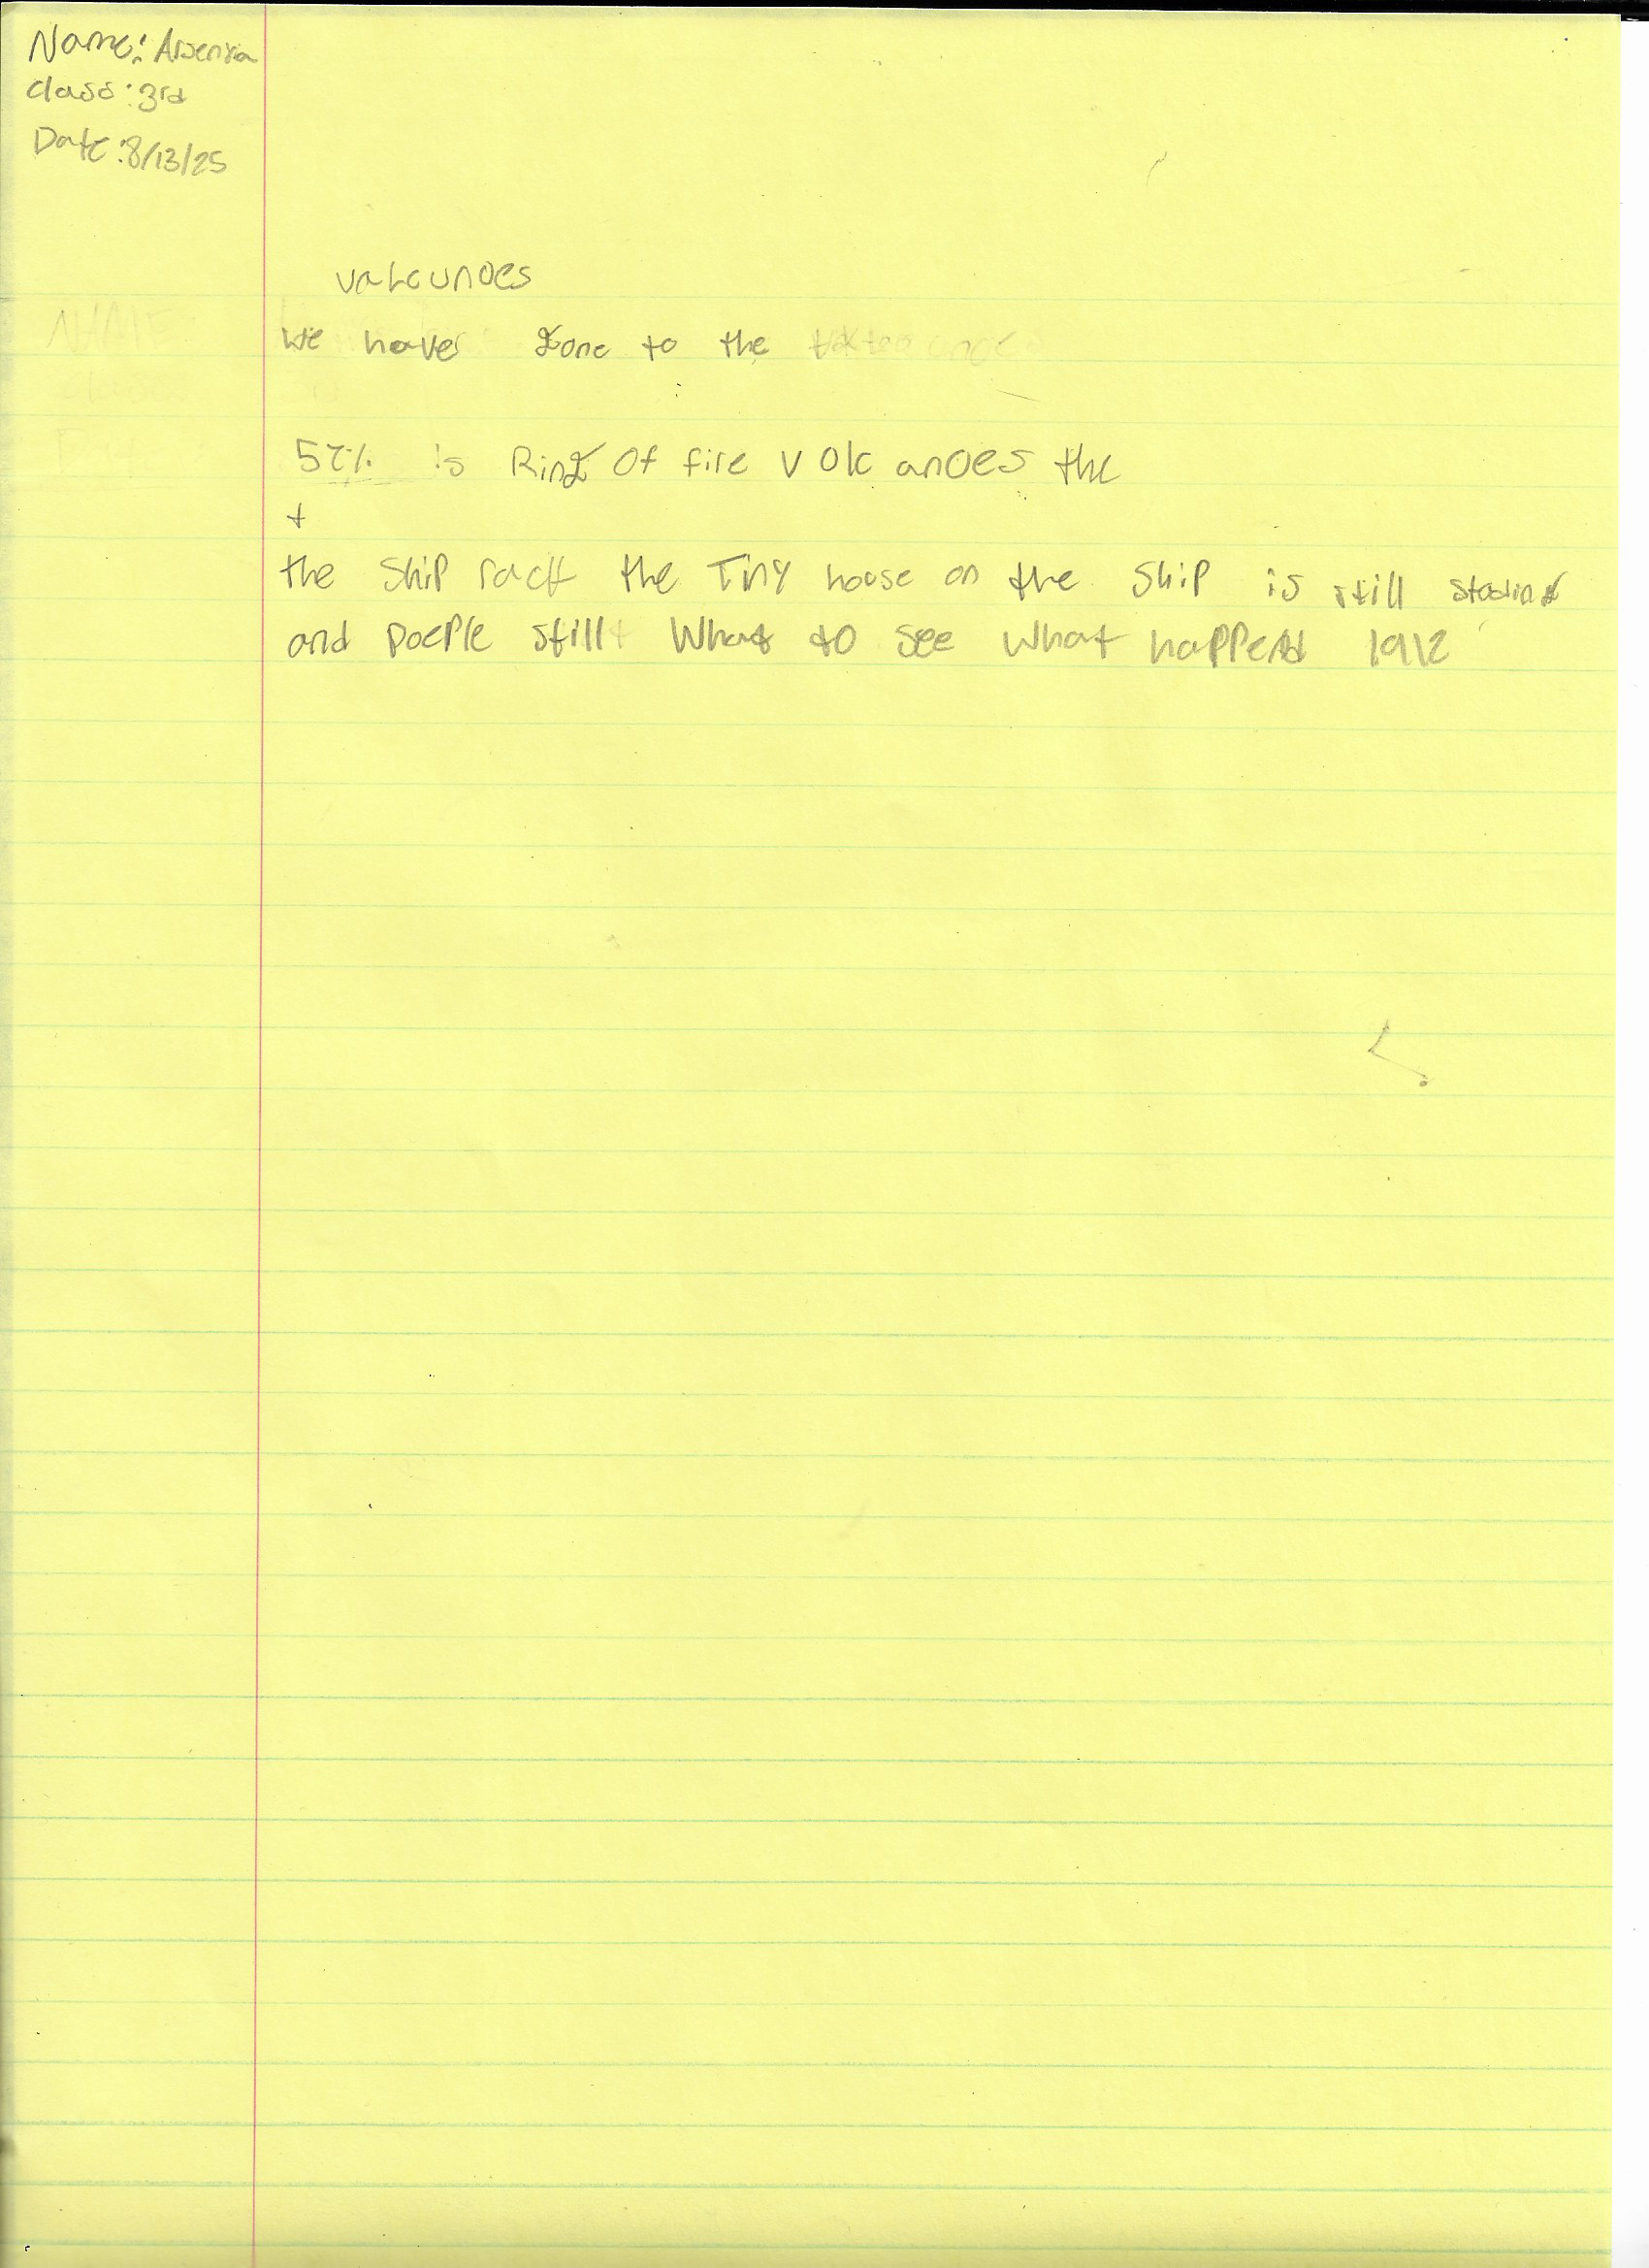 Name: Arsenia
class: 3rd
Date: 8/13/25
valcunoes
we have gone to the
is Ring Of fire Volcanoes the
t
the Ship ractt the Tiny house on the Ship is still stading
and poeple still What to see what happend 1912